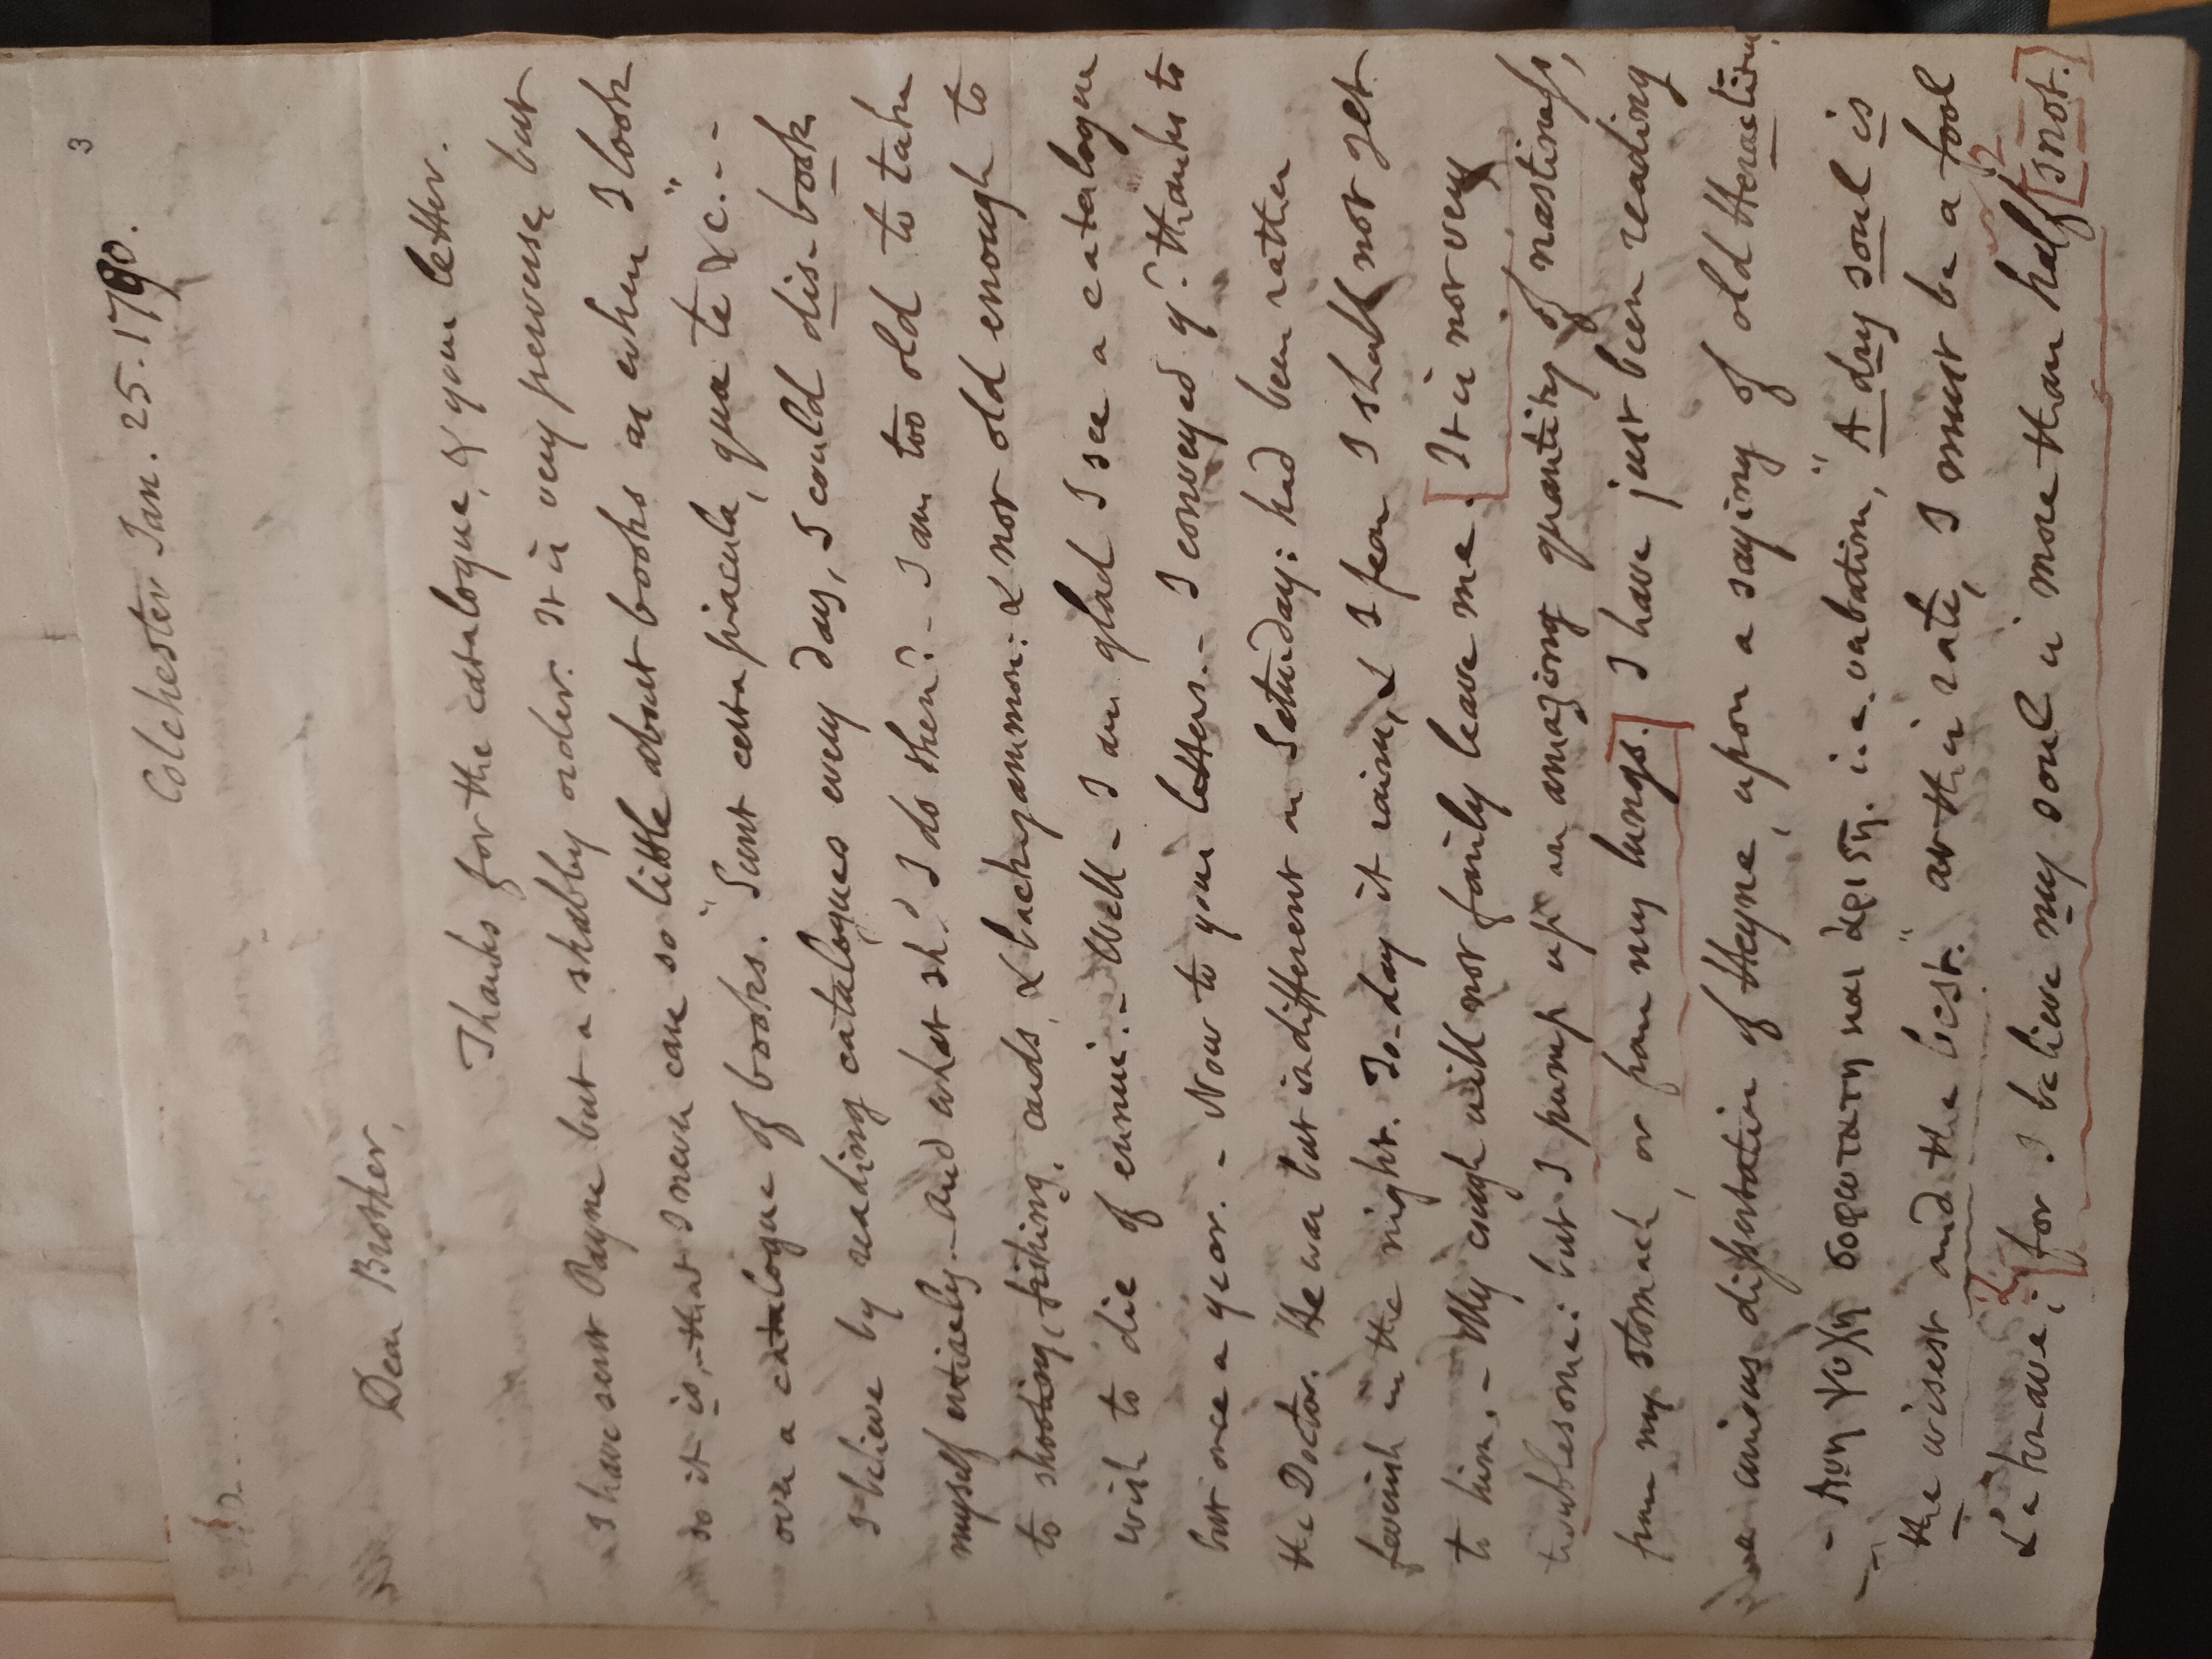 3
Colchester Jan. 25. 1790.
Dear Brother,
Thanks for the catalogue, & your letter.
I have sent Payne but a shabby order. It is very perverse, but
so it is, – that I never care so little about books as when I look
over a catalogue of books. "Sunt certa piacula, quæ te" &c. – –
I believe by reading catalogues every day, I could dis-book
myself entirely. – and what shd. I do then? – I am too old to take
to shooting, fishing, cards, & backgammon: & not old enough to
wish to die of ennui. – Well – I am glad I see a catalogue
but once a year. – Now to your letters. – I conveyed yr. thanks to
the Doctor. He was but indifferent on Saturday: had been rather
feverish in the night. To-day it rains, & I fear I shall not get
to him. – My cough will not fairly leave me. [It is not very
troublesome: but I pump up an amazing quantity of nastiness,
from my stomach, or from my lungs.] I have just been reading
a curious dissertation of Heyne, upon a saying of old Heraclitus,
– Αυη ψυχη σοφωτατη και ἀριϛη. i.e. vabatim, "A dry soul is
the wisest and the best." at this rate, I must be a fool
& a knave; [for I believe my soul is more than half [snot.]